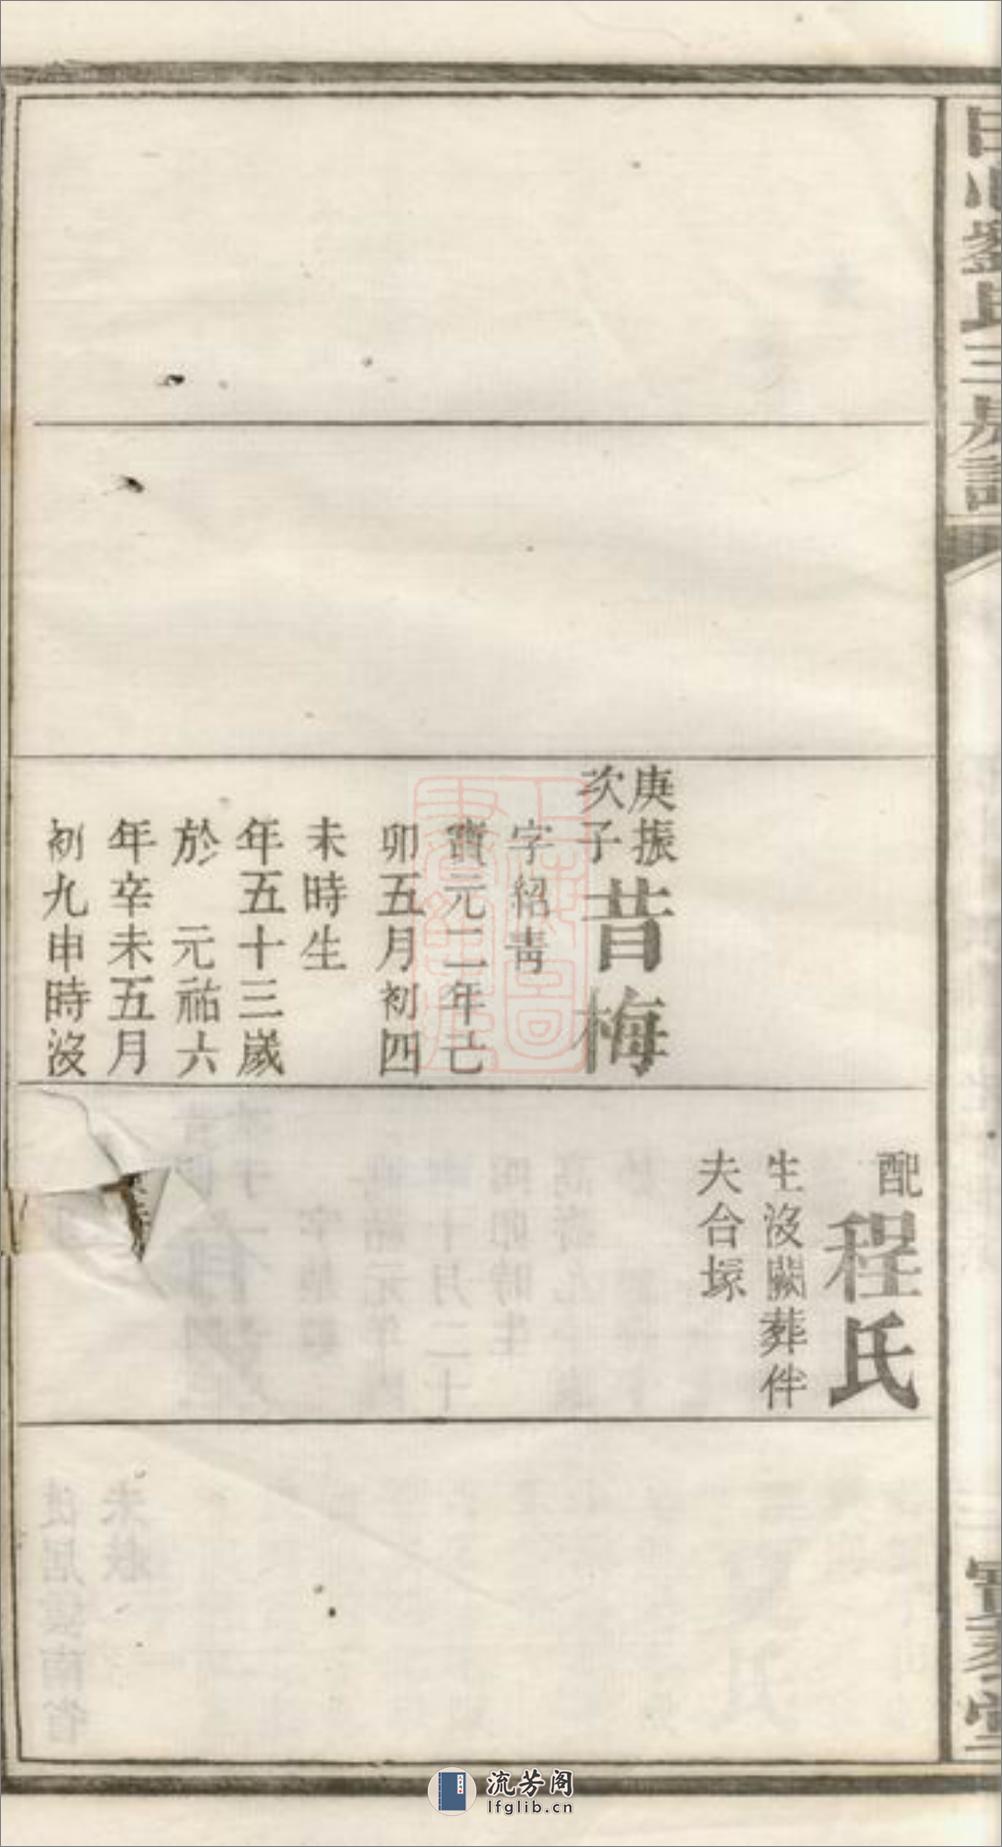 劉氏三房譜
庚振
次子
昔梅
字紹青
寶元二年己
卯五月初四
未時生
年五十三歲
於 元祐六
年辛未五月
初九申時沒
配
程氏
生沒闕葬伴
夫合塚
流芳阁
lfglib.cn